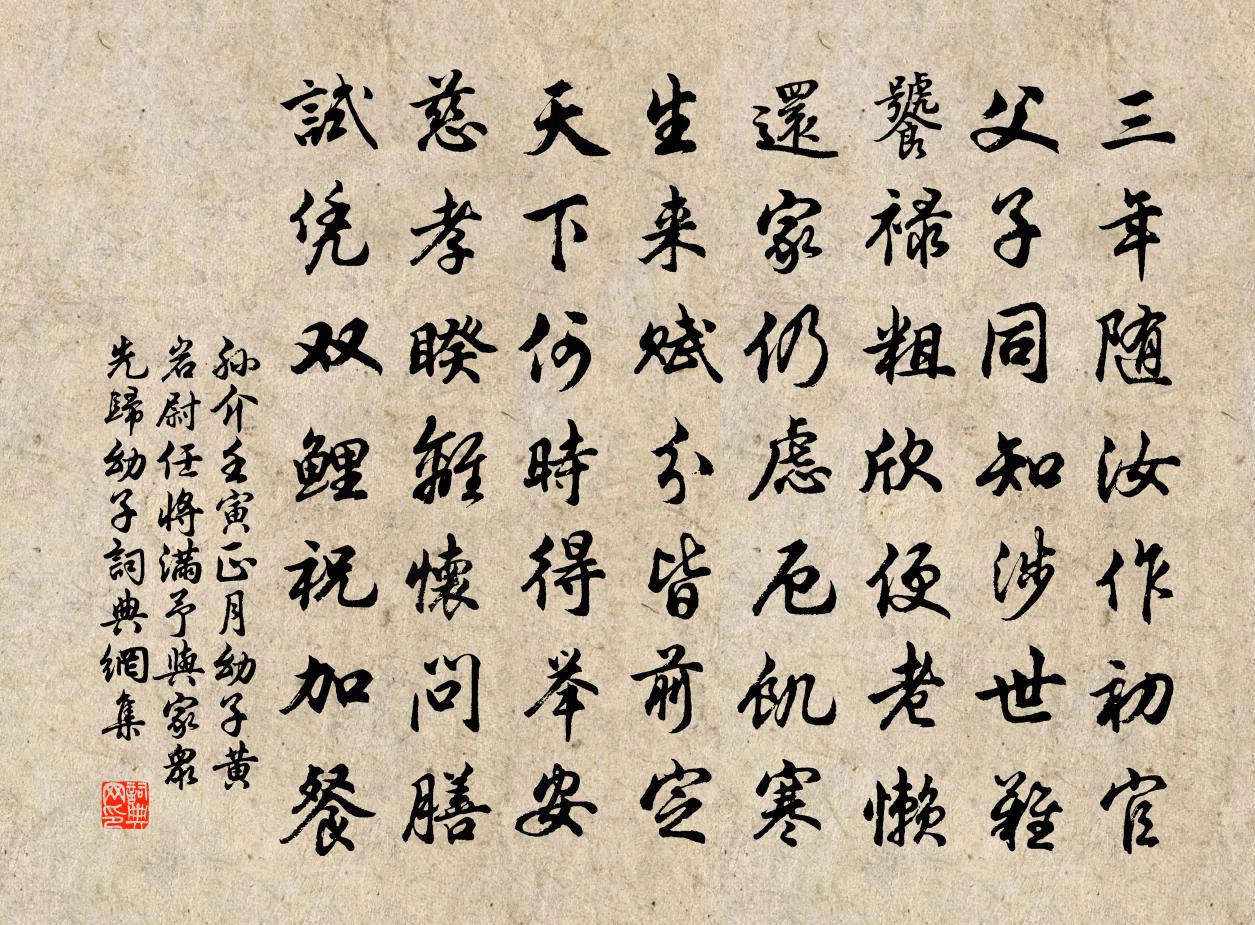 三年随汝作初官
父子同知涉世難
饕禄粗欣便老懒
還家仍虑厄飢寒
生来赋分皆前定
天下何時得举安
慈孝睽離懷問膳
試凭双鲤祝加餐
孙介壬寅正月幼子黄
岩尉任将满予與家衆
先歸幼子詞典網集
詞典网印